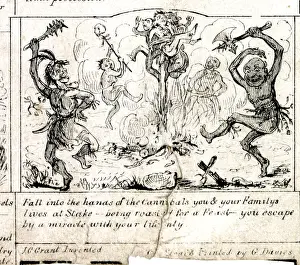 Fall into the hands of the Cannibals you & your Familys
lives at Stake - being roast for a Feast you escape
by a miracle with your life only
Invented
Printed by G Davies